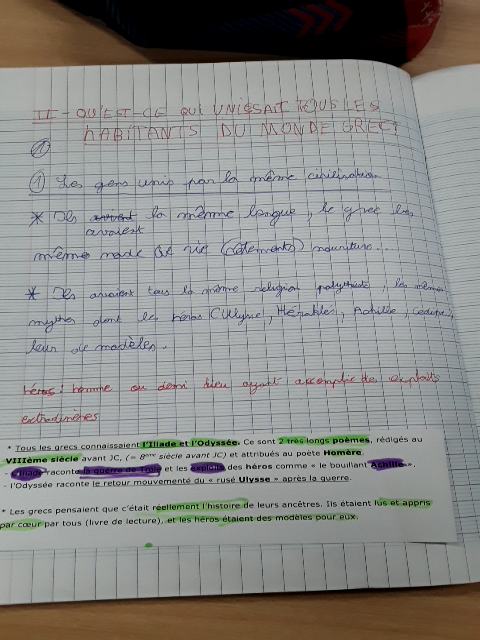 II - QU'EST-CE QUI UNISSAIT TOUS LES
HABITANTS DU MONDE GREC?
①
① Les gens unis par la même civilisation
* Ils avaient la même langue, le grec les
avaient
même mode de vie (vêtements) nourriture...
* Ils avaient tous la même religion polythéiste, les mêmes
mythes dont les héros (Ulysse, Héraklès, Achille, oedipe),
leur de modèles.
héros: homme ou demi dieu ayant accomplie des exploits
extradineires
* Tous les grecs connaissaient l'Iliade et l'Odyssée. Ce sont 2 très longs poèmes, rédigés au
VIIIème siècle avant JC, (= 8ème siècle avant JC) et attribués au poète Homère.
- L'Iliade raconte la guerre de Troie et les exploits des héros comme « le bouillant Achille ».
- l'Odyssée raconte le retour mouvementé du « rusé Ulysse » après la guerre.
* Les grecs pensaient que c'était réellement l'histoire de leurs ancêtres. Ils étaient lus et appris
par cœur par tous (livre de lecture), et les héros étaient des modèles pour eux.